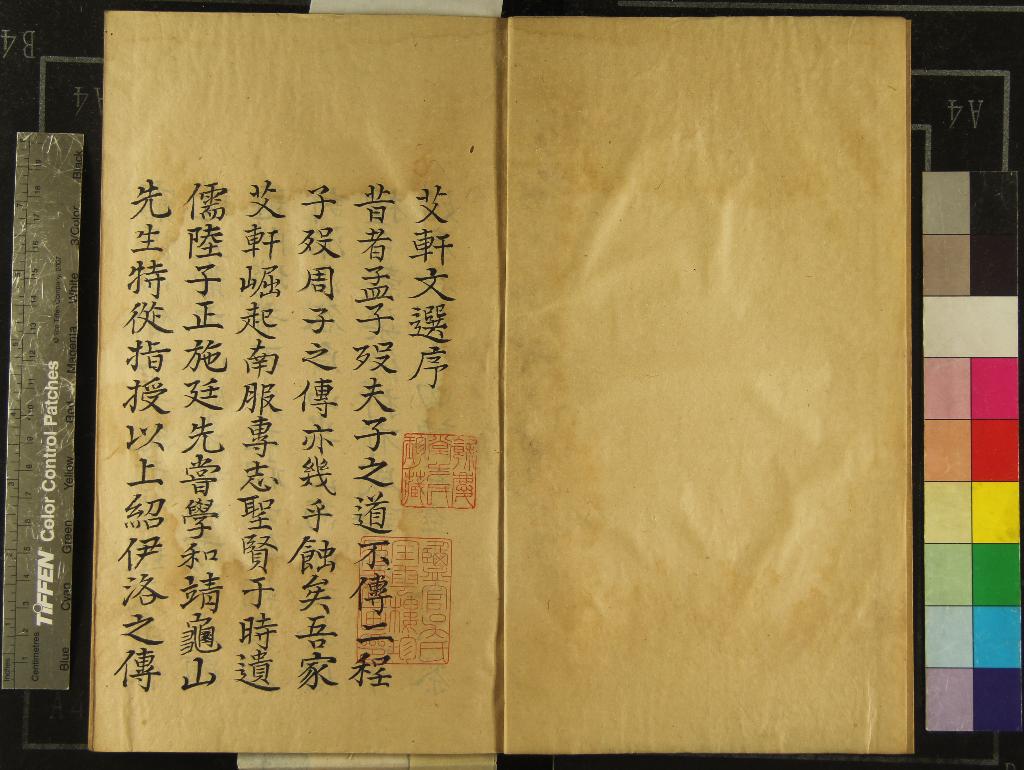 艾軒文選序
昔者孟子歿夫子之道不傳二程
子歿周子之傳亦幾乎蝕矣吾家
艾軒崛起南服專志聖賢于時遺
儒陸子正施廷先嘗學和靖龜山
先生特從指授以上紹伊洛之傳
B4
A4
A4
TIFFEN Color Control Patches
© The Tiffen Company, 2007
Inches
Centimetres
Blue
Cyan
Green
Yellow
Red
Magenta
White
3/Color
Black